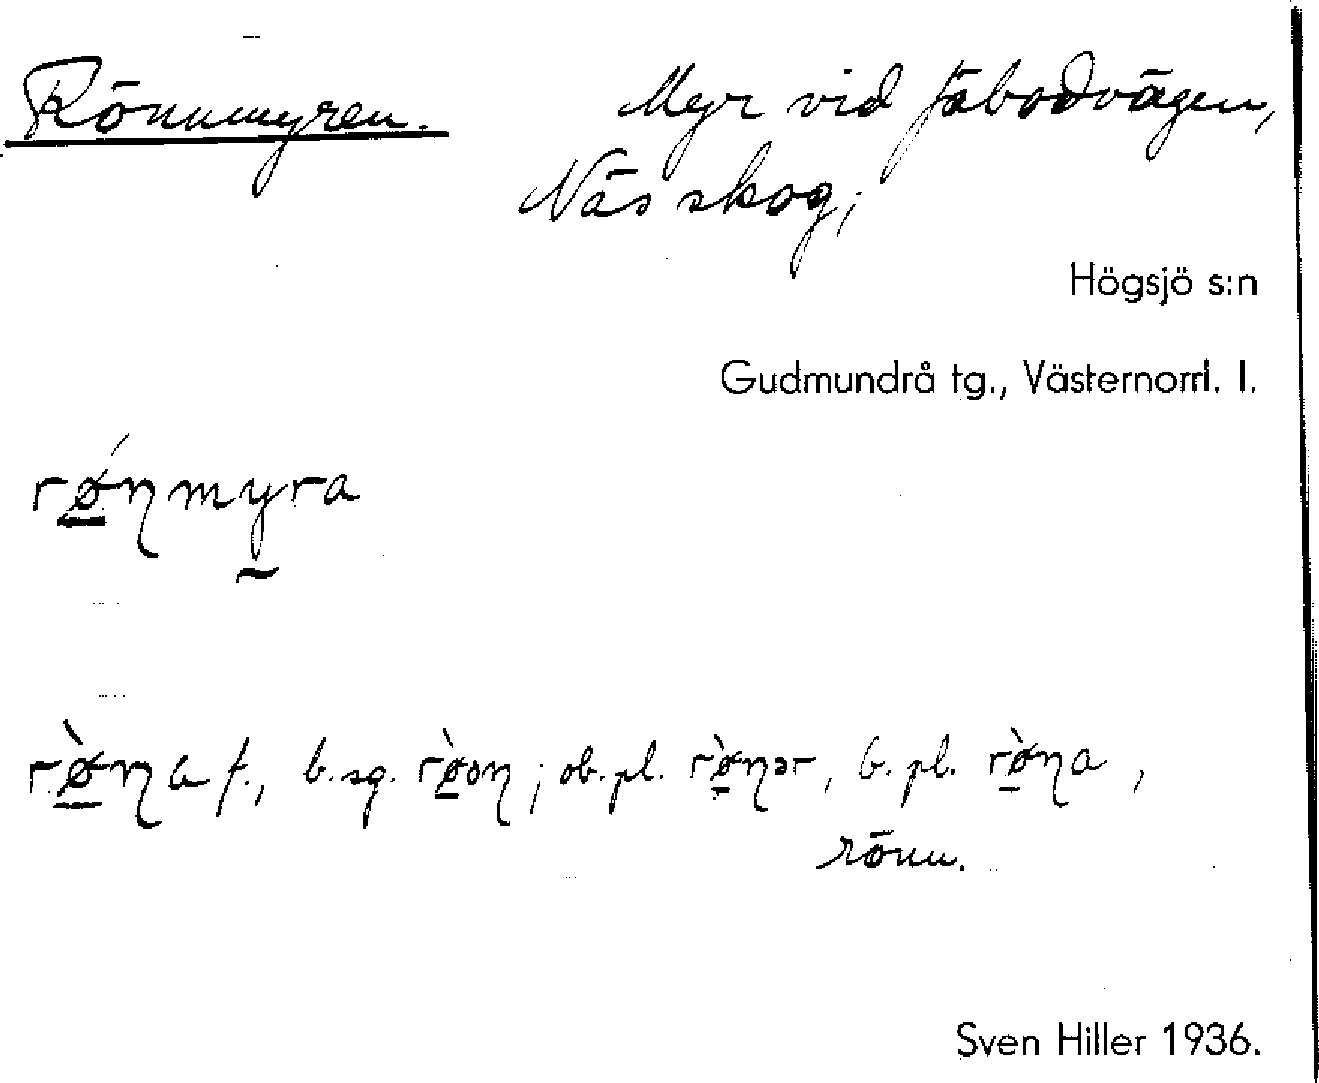 Rönnmyren. Myr vid fäbodvägen,
Näs skog;
Högsjö s:n
Gudmundrå tg., Västernorrl. l.
rǿ̲ɳmy̰ra
rø̲̀ɳa f., b. sg. rø̲̀ən; ob. pl. rø̲̀ɳər, b. pl. rø̲̀ɳa,
rönn.
Sven Hiller 1936.